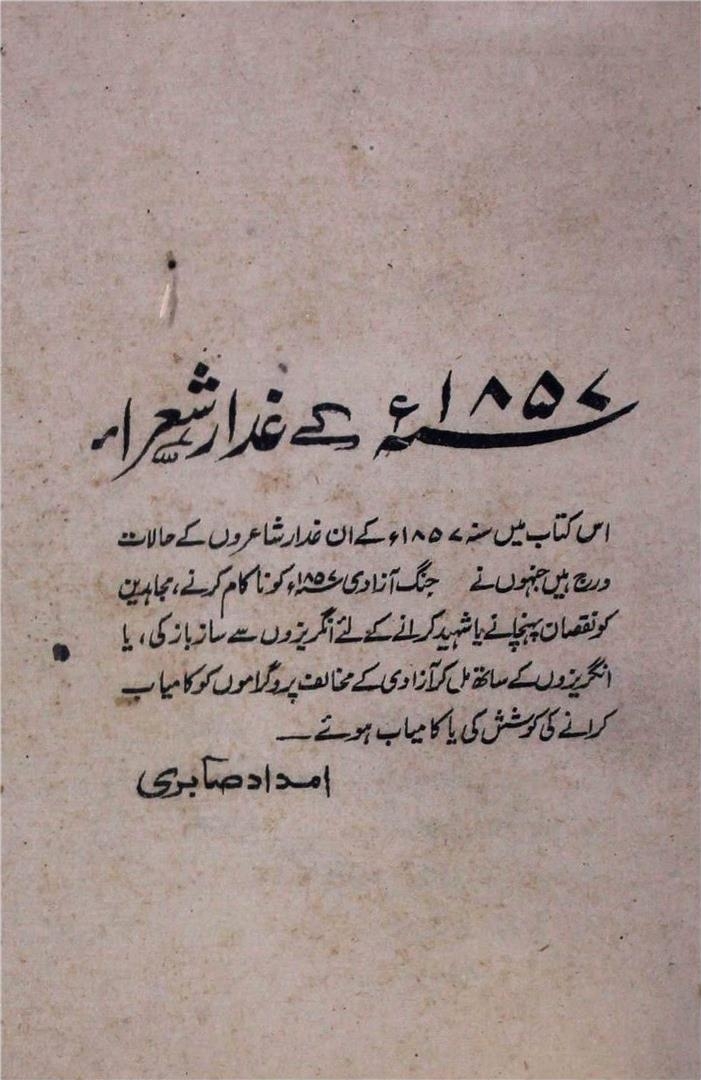 ۱۸۵۷ء کے غدار شعراء
اس کتاب میں سنہ ۱۸۵۷ء کے ان غدار شاعروں کے حالات
درج ہیں جنہوں نے جنگ آزادی ۱۸۵۷ء کو ناکام کرنے، مجاہدین
کو نقصان پہنچانے یا شہید کرانے کے لئے انگریزوں سے ساز باز کی، یا
انگریزوں کے ساتھ مل کر آزادی کے مخالف پروگراموں کو کامیاب
کرانے کی کوشش کی یا کامیاب ہوئے۔
امداد صابری